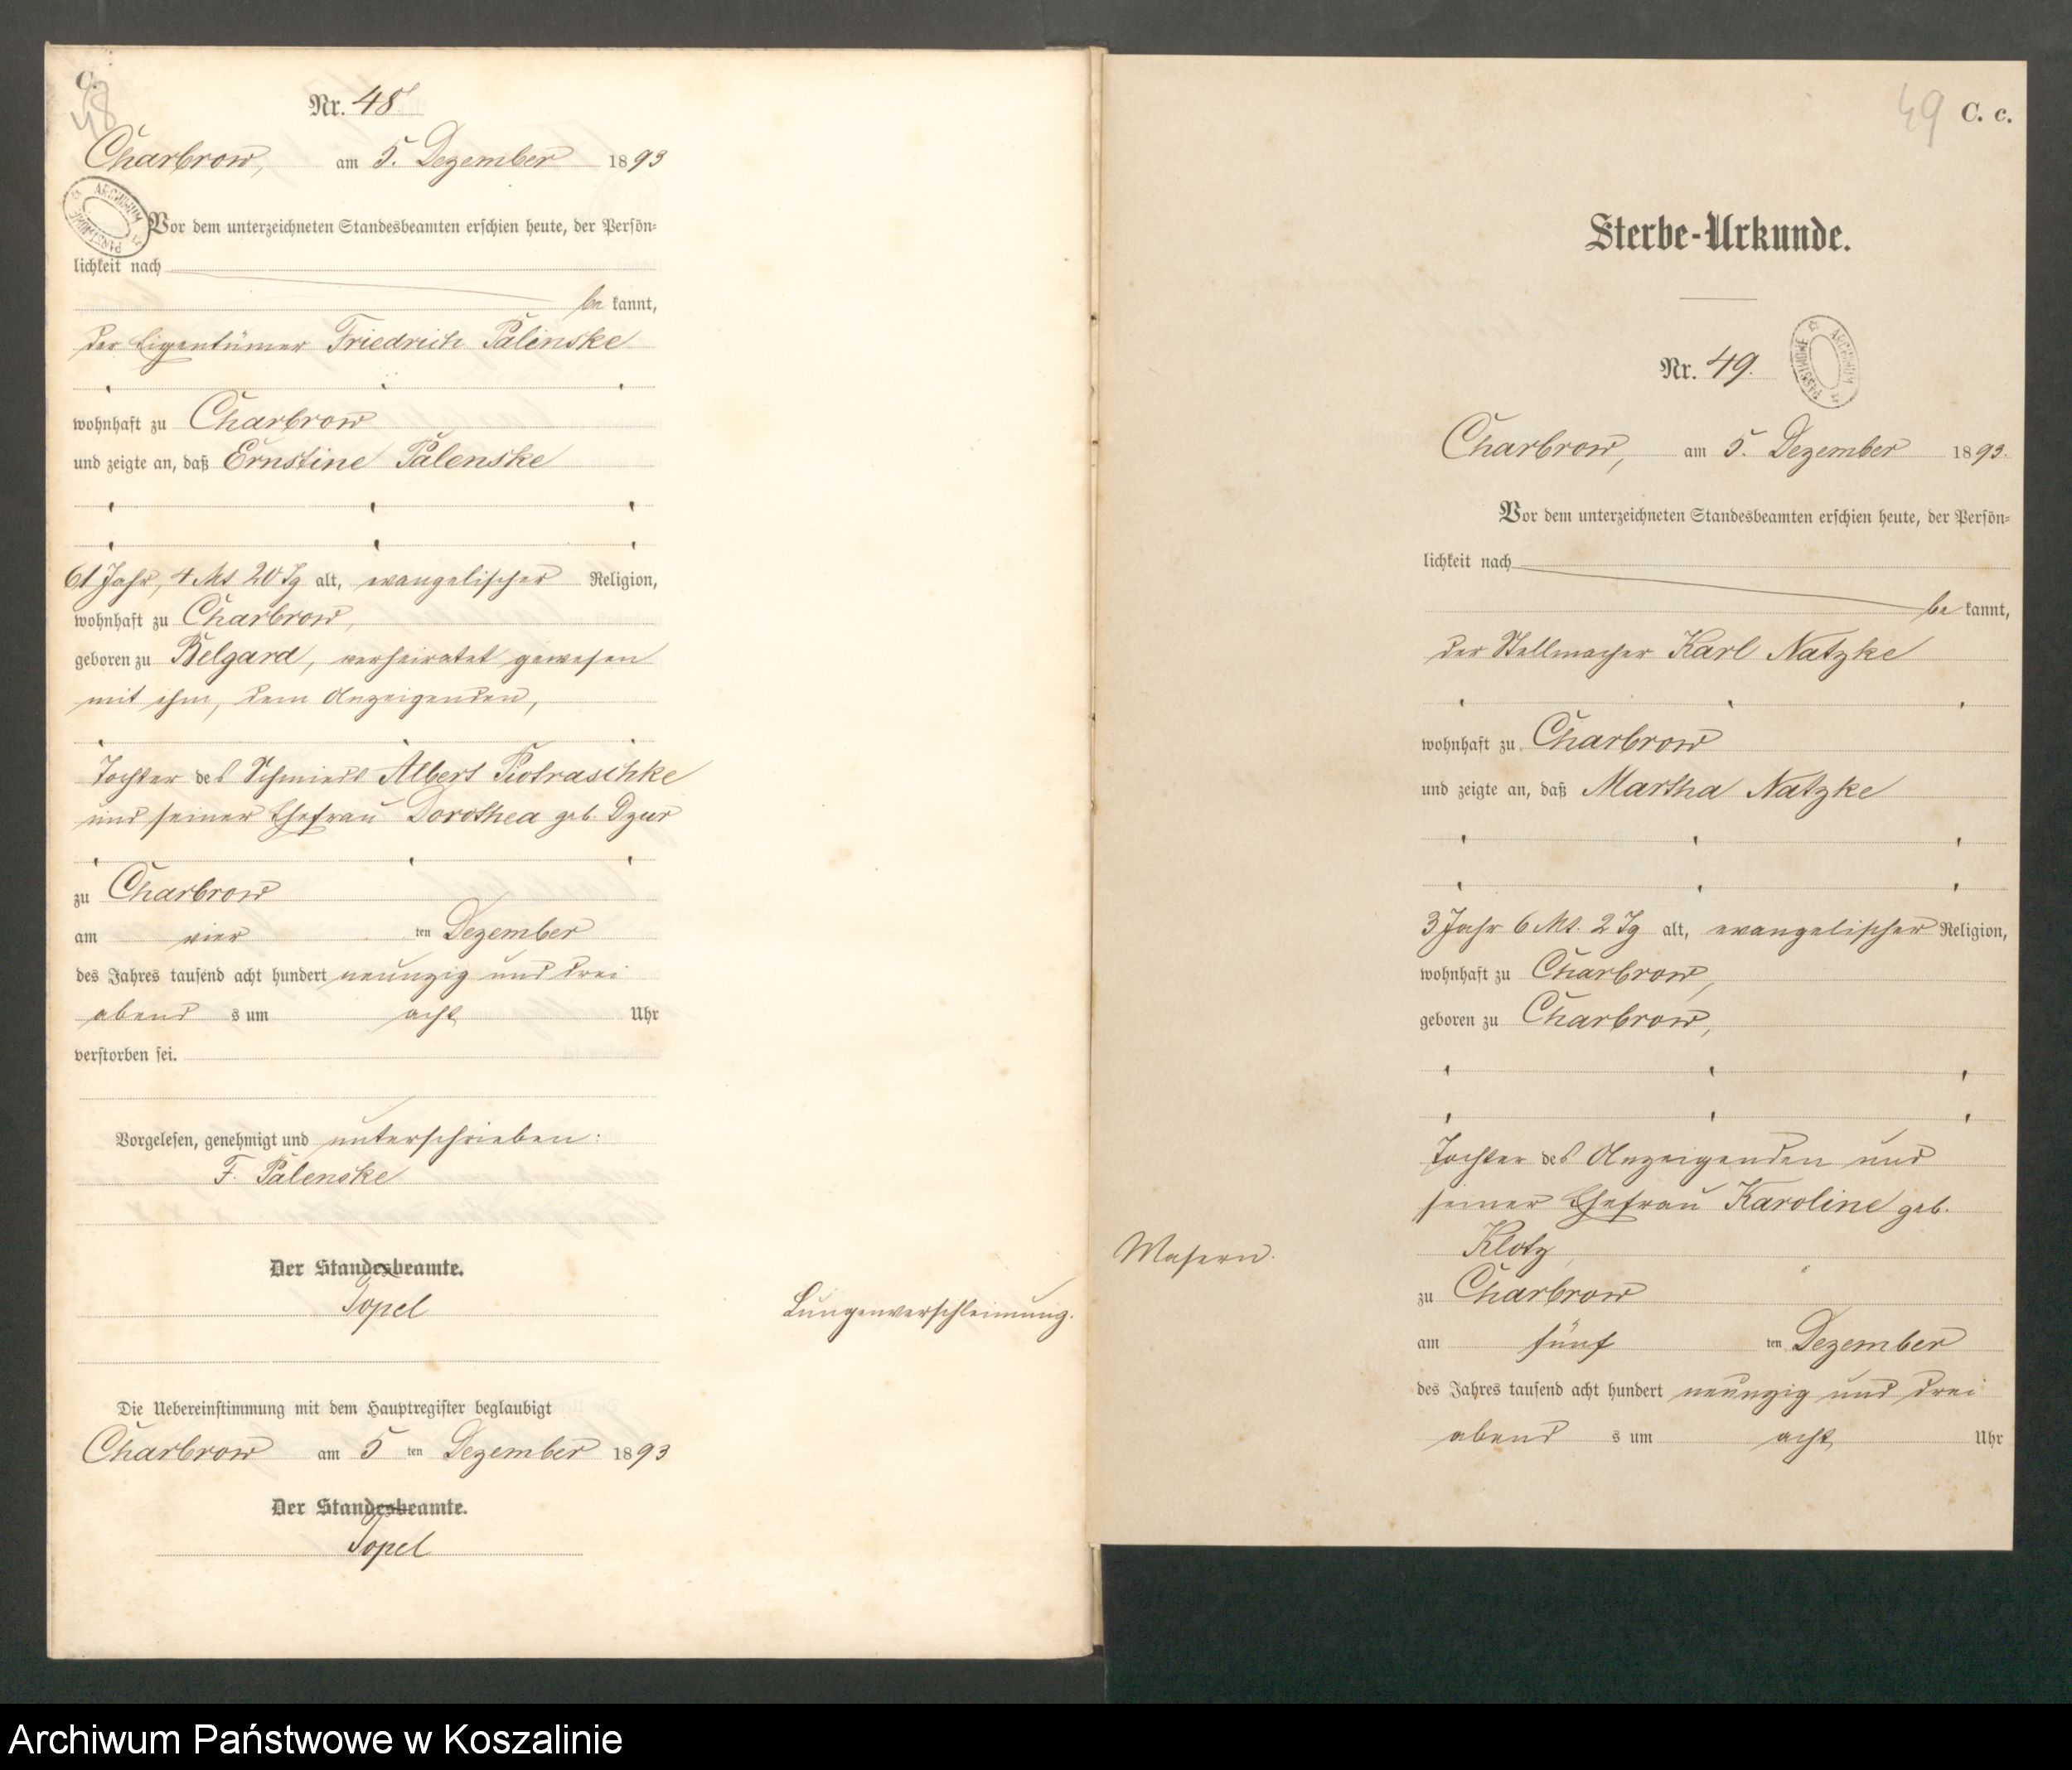 C.
48
Nr. 48
Charbrow, am 5. Dezember 1893
ARCHIWUM PAŃSTWOWE
Vor dem unterzeichneten Standesbeamten erschien heute, der Persön-
lichkeit nach
be kannt,
der Eigentümer Friedrich Palenske
wohnhaft zu Charbrow
und zeigte an, daß Ernstine Palenske
61 Jahr, 4 Mt 20 Tg alt, evangelischer Religion,
wohnhaft zu Charbrow,
geboren zu Belgard, verheiratet gewesen
mit ihm, dem Anzeigenden,
Tochter des Schmieds Albert Piotraschke
und seiner Ehefrau Dorothea geb. Dzur
zu Charbrow
am vier ten Dezember
des Jahres tausend acht hundert neunzig und drei
abend s um acht Uhr
verstorben sei.
Vorgelesen, genehmigt und unterschrieben:
F. Palenske
Der Standesbeamte.
Topel
Lungenverschleimung.
Die Uebereinstimmung mit dem Hauptregister beglaubigt
Charbrow am 5 ten Dezember 1893
Der Standesbeamte.
Topel
49 C. c.
Sterbe-Urkunde.
Nr. 49.
ARCHIWUM PAŃSTWOWE
Charbrow, am 5. Dezember 1893.
Vor dem unterzeichneten Standesbeamten erschien heute, der Persön-
lichkeit nach
be kannt,
der Stellmacher Karl Natzke
wohnhaft zu Charbrow
und zeigte an, daß Martha Natzke
3 Jahr 6 Mt. 2 Tg alt, evangelischer Religion,
wohnhaft zu Charbrow,
geboren zu Charbrow,
Tochter des Anzeigenden und
seiner Ehefrau Karoline geb.
Klotz
Masern.
zu Charbrow
am fünf ten Dezember
des Jahres tausend acht hundert neunzig und drei
abend s um acht Uhr
Archiwum Państwowe w Koszalinie